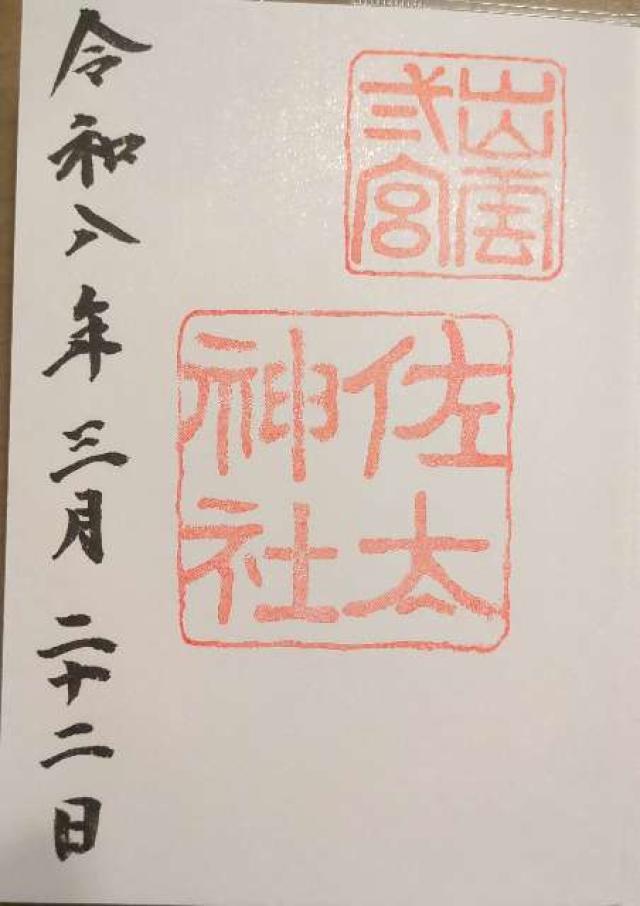 出雲
弍宮
佐太
神社
令和八年三月二十二日